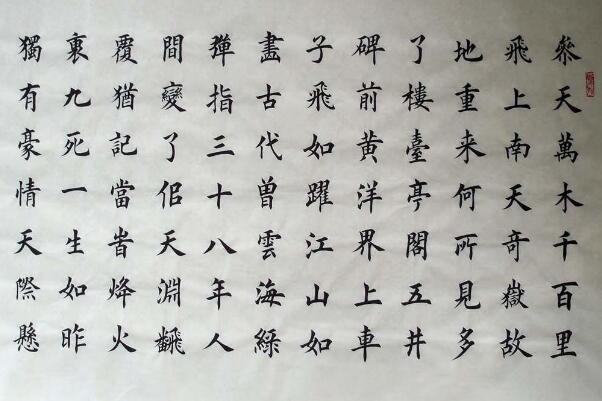 叅天萬木千百里
飛上南天奇嶽故
地重来何所見多
了樓臺亭閣五井
碑前黃洋界上車
子飛如躍江山如
畫古代曾雲海綠
彈指三十八年人
間變了佀天淵飜
覆猶記當旹烽火
裏九死一生如昨
獨有豪情天際懸